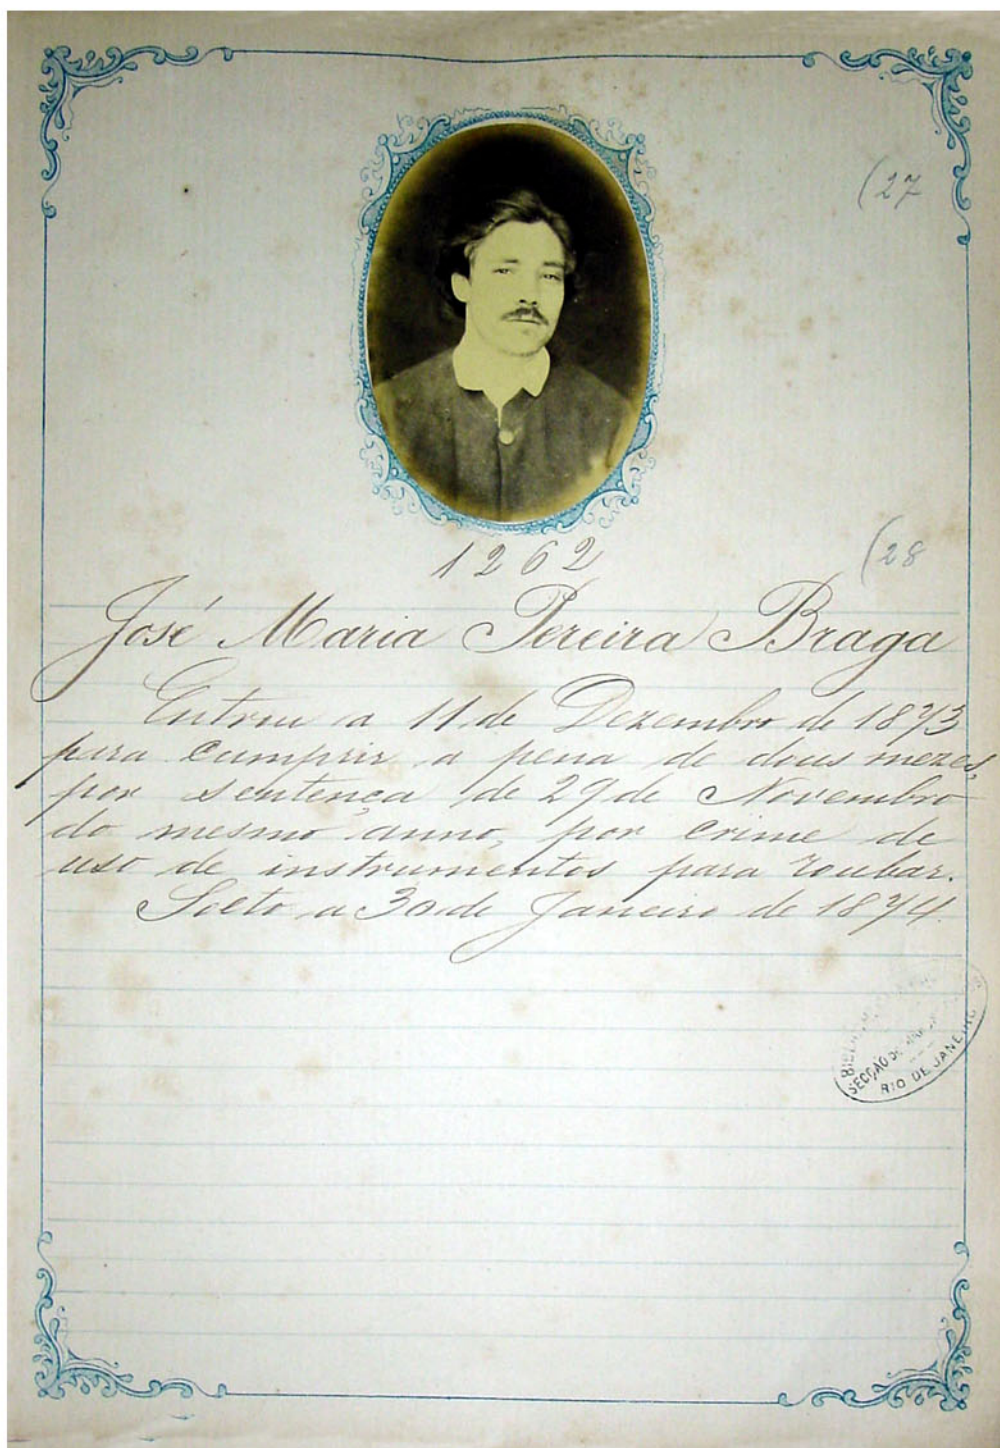 (27
1262
(28
José Maria Pereira Braga
Entrou a 11 de Dezembro de 1873
para cumprir a pena de dous mezes,
por sentença de 29 de Novembro
do mesmo anno, por crime de
uso de instrumentos para roubar.
Solto a 30 de Janeiro de 1874.
SECÇÃO DE
RIO DE JANEIRO